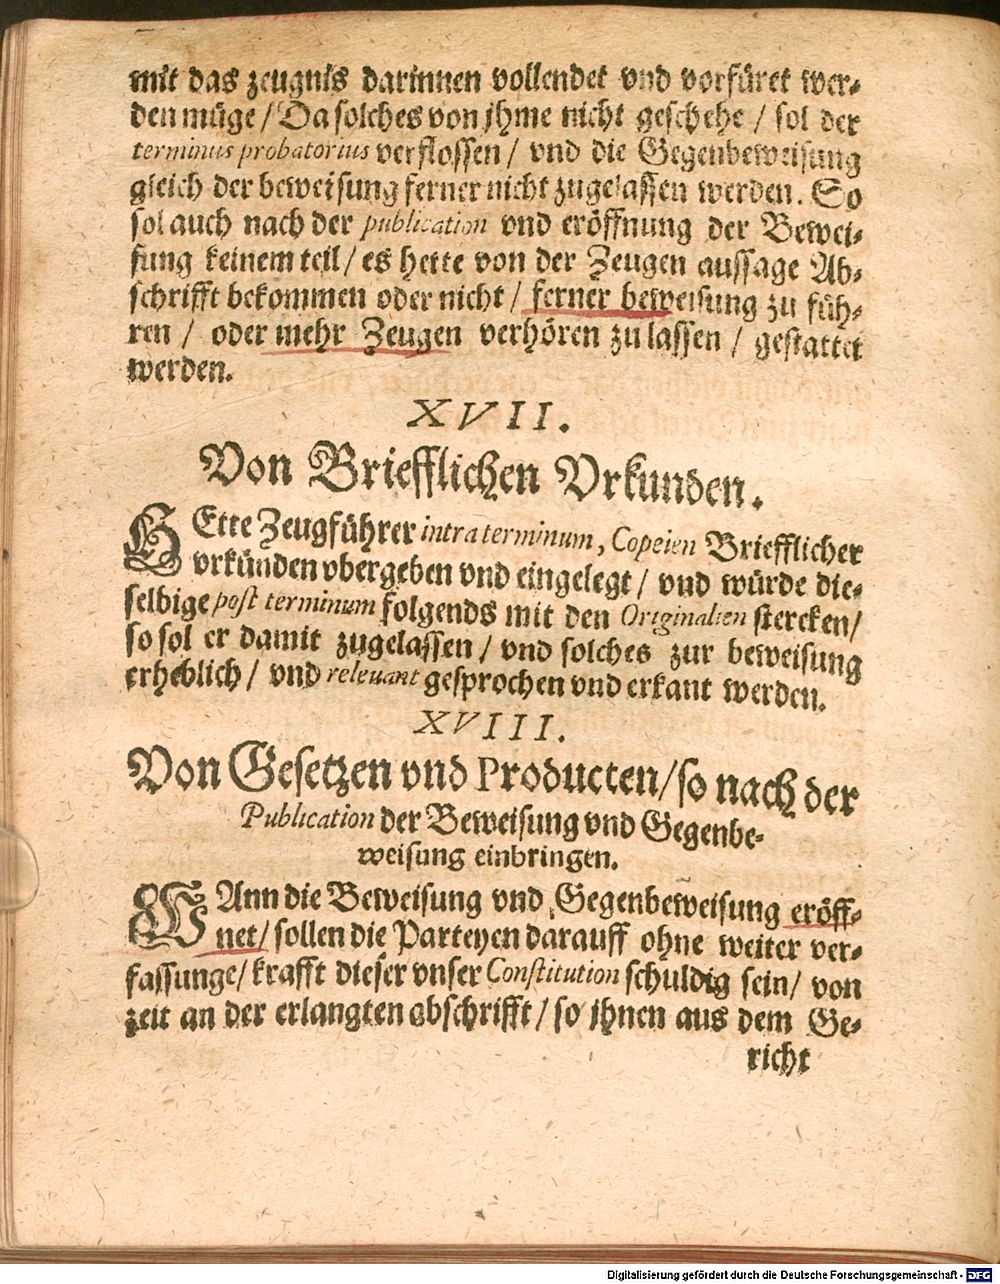 mit das zeugnis darinnen vollendet vnd vorfüret wer-
den müge / Da solches von jhme nicht geschehe / sol der
terminus probatorius verflossen / vnd die Gegenbeweisung
gleich der beweisung ferner nicht zugelassen werden. So
sol auch nach der publication vnd eröffnung der Bewei-
sung keinem teil / es hette von der Zeugen aussage Ab-
schrifft bekommen oder nicht / ferner beweisung zu füh-
ren / oder mehr Zeugen verhören zu lassen / gestattet
werden.
XVII.
Von Briefflichen Vrkunden.
HEtte Zeugführer intra terminum, Copeien Briefflicher
vrkünden vbergeben vnd eingelegt / vnd würde die-
selbige post terminum folgends mit den Originalien stercken /
so sol er damit zugelassen / vnd solches zur beweisung
erheblich / vnd releuant gesprochen vnd erkant werden.
XVIII.
Von Gesetzen vnd Producten / so nach der
Publication der Beweisung vnd Gegenbe-
weisung einbringen.
WAnn die Beweisung vnd Gegenbeweisung eröff-
net / sollen die Parteyen darauff ohne weiter ver-
fassunge / krafft dieser vnser Constitution schuldig sein / von
zeit an der erlangten abschrifft / so jhnen aus dem Ge-
richt
Digitalisierung gefördert durch die Deutsche Forschungsgemeinschaft - DFG